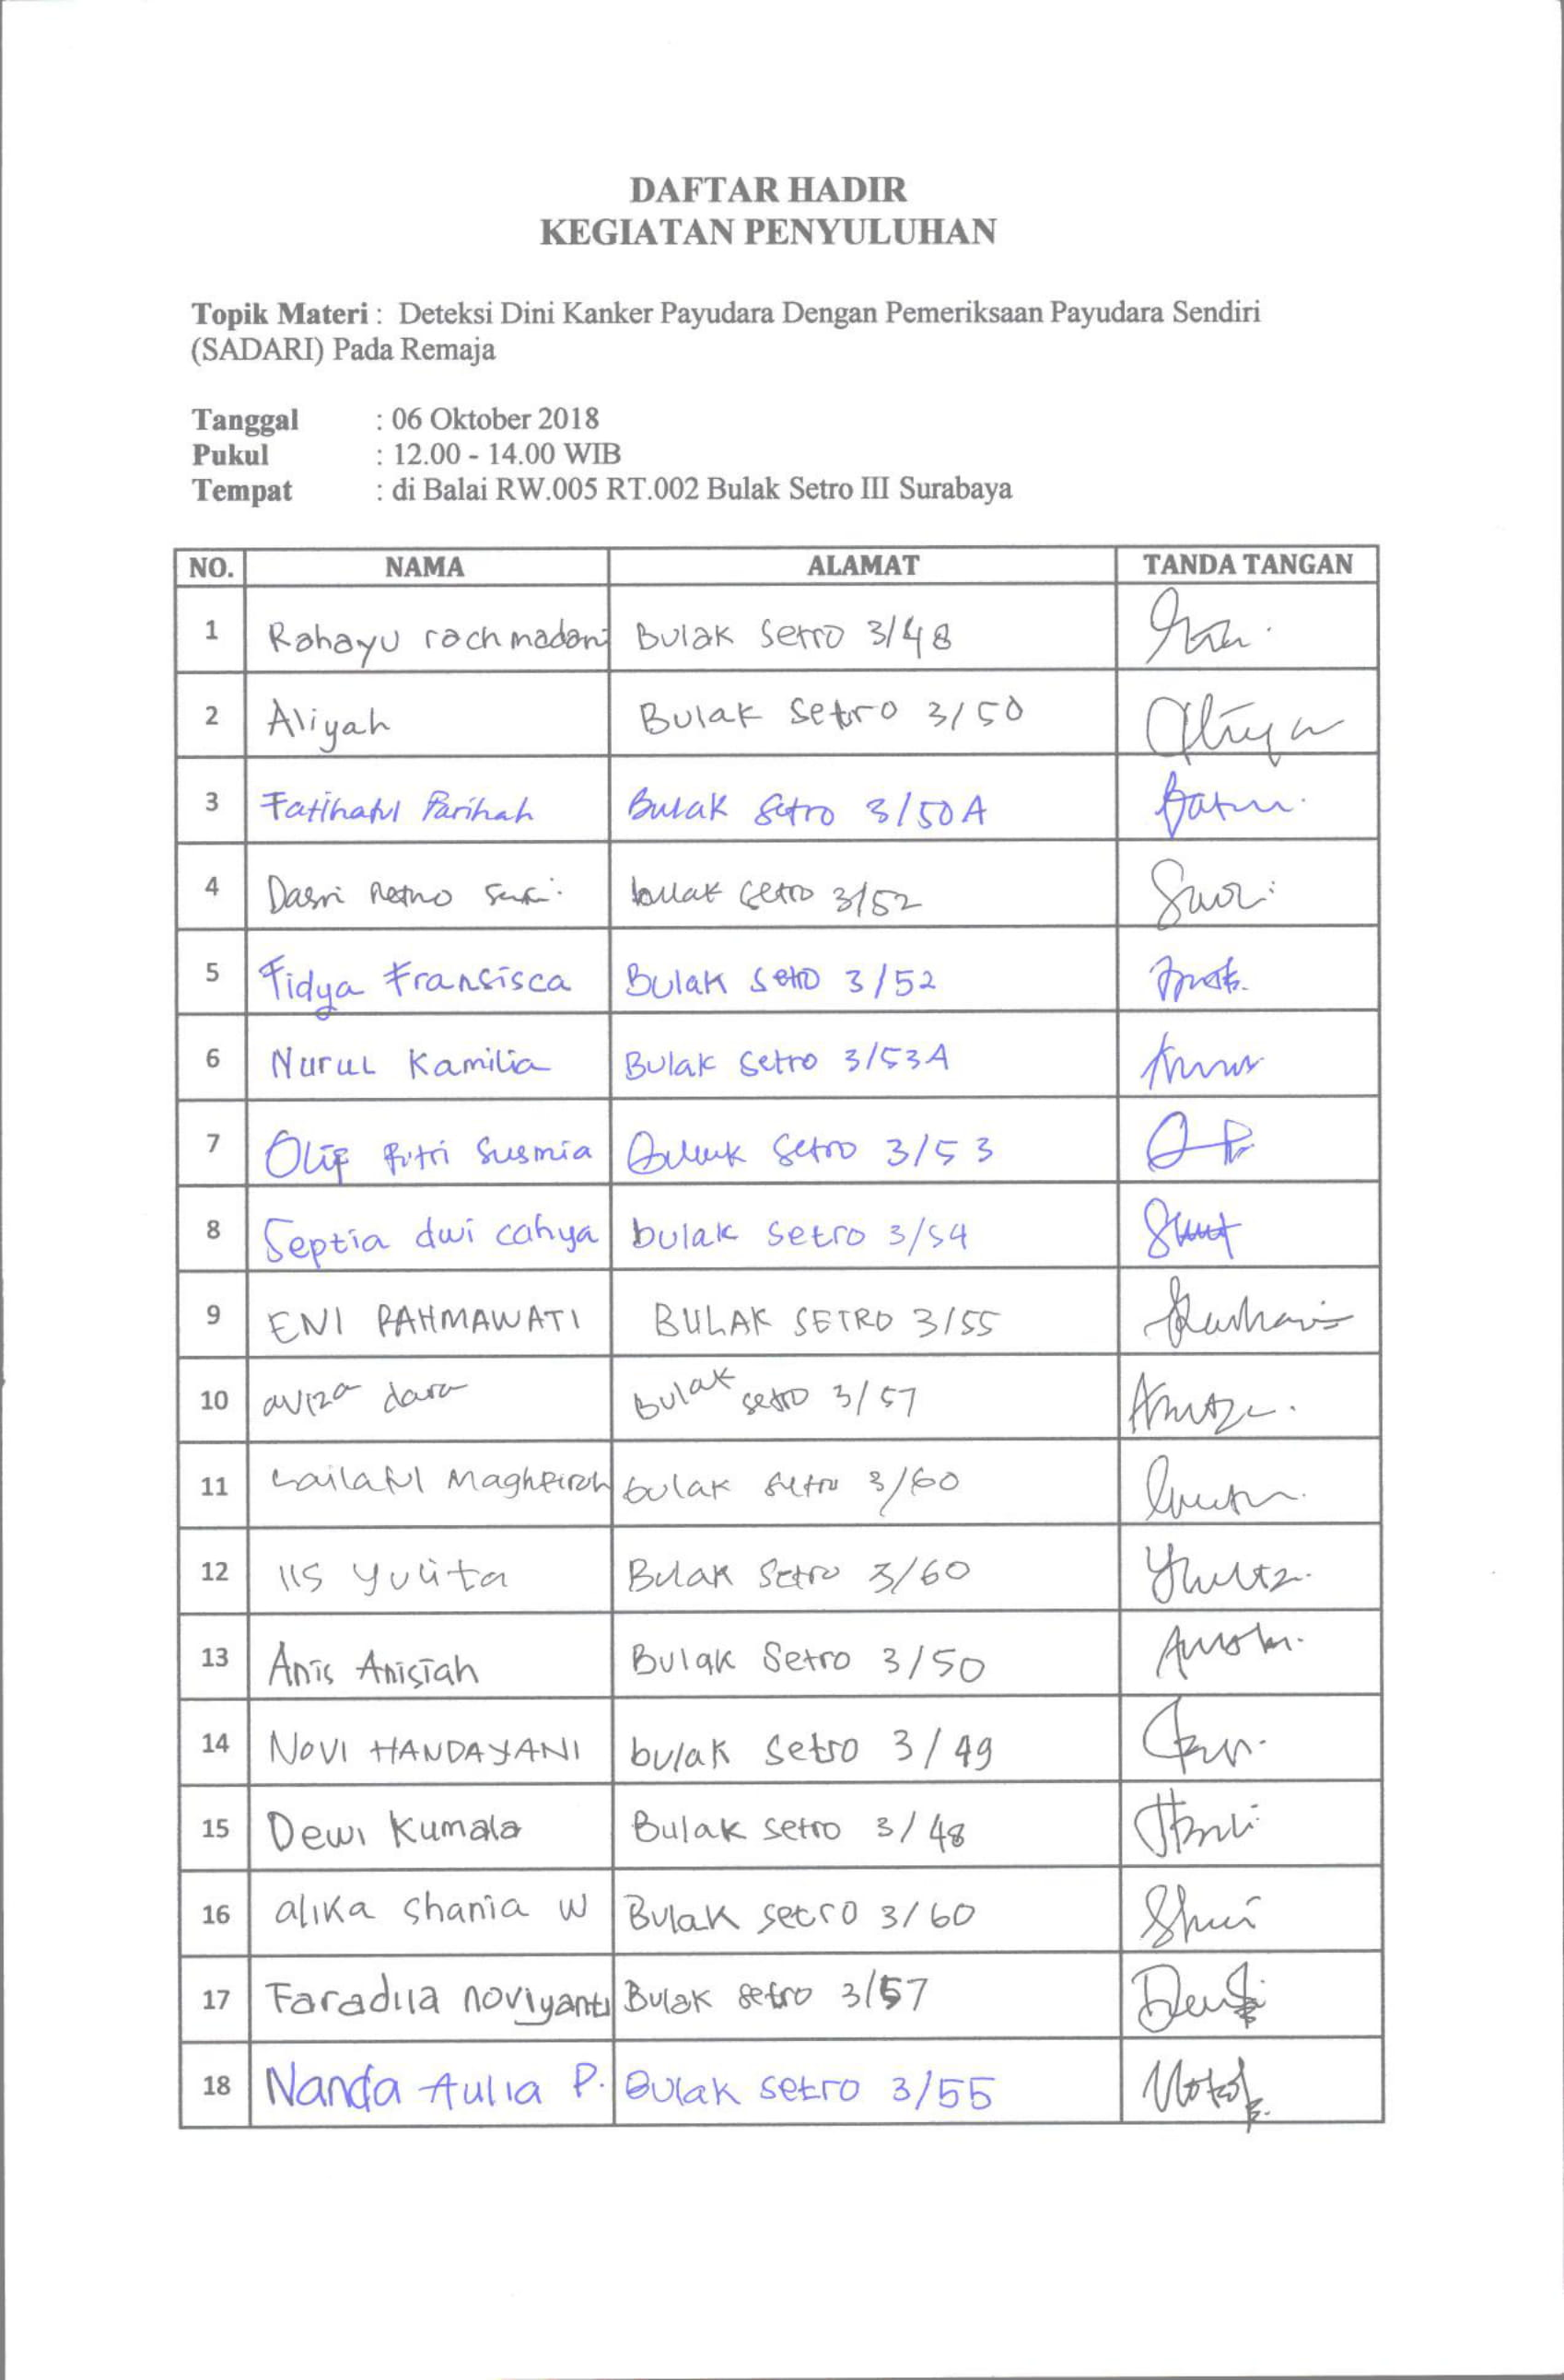 DAFTAR HADIR
KEGIATAN PENYULUHAN
Topik Materi : Deteksi Dini Kanker Payudara Dengan Pemeriksaan Payudara Sendiri
(SADARI) Pada Remaja
Tanggal : 06 Oktober 2018
Pukul : 12.00 - 14.00 WIB
Tempat : di Balai RW.005 RT.002 Bulak Setro III Surabaya
NO. NAMA ALAMAT TANDA TANGAN
1 Rahayu rachmadani Bulak Setro 3/48
2 Aliyah Bulak Setro 3/50
3 Fatihatul Parihah Bulak Setro 3/50A
4 Retno bulak setro 3/52
5 Fidya Fransisca Bulak Setro 3/52
6 Nurul Kamilia Bulak Setro 3/53A
7 Olif Putri Susmia Bulak Setro 3/53
8 Septia dwi cahya bulak setro 3/54
9 ENI RAHMAWATI BULAK SETRO 3/55
10 aviza dara Bulak setro 3/57
11 Lailatul Maghfiroh bulak setro 3/60
12 IIS Yulita Bulak Setro 3/60
13 Anis Anisiah Bulak Setro 3/50
14 NOVI HANDAYANI bulak setro 3/49
15 Dewi Kumala Bulak setro 3/48
16 alika shania w Bulak setro 3/60
17 Faradila noviyanti Bulak setro 3/57
18 Nanda Aulia P. Bulak setro 3/55